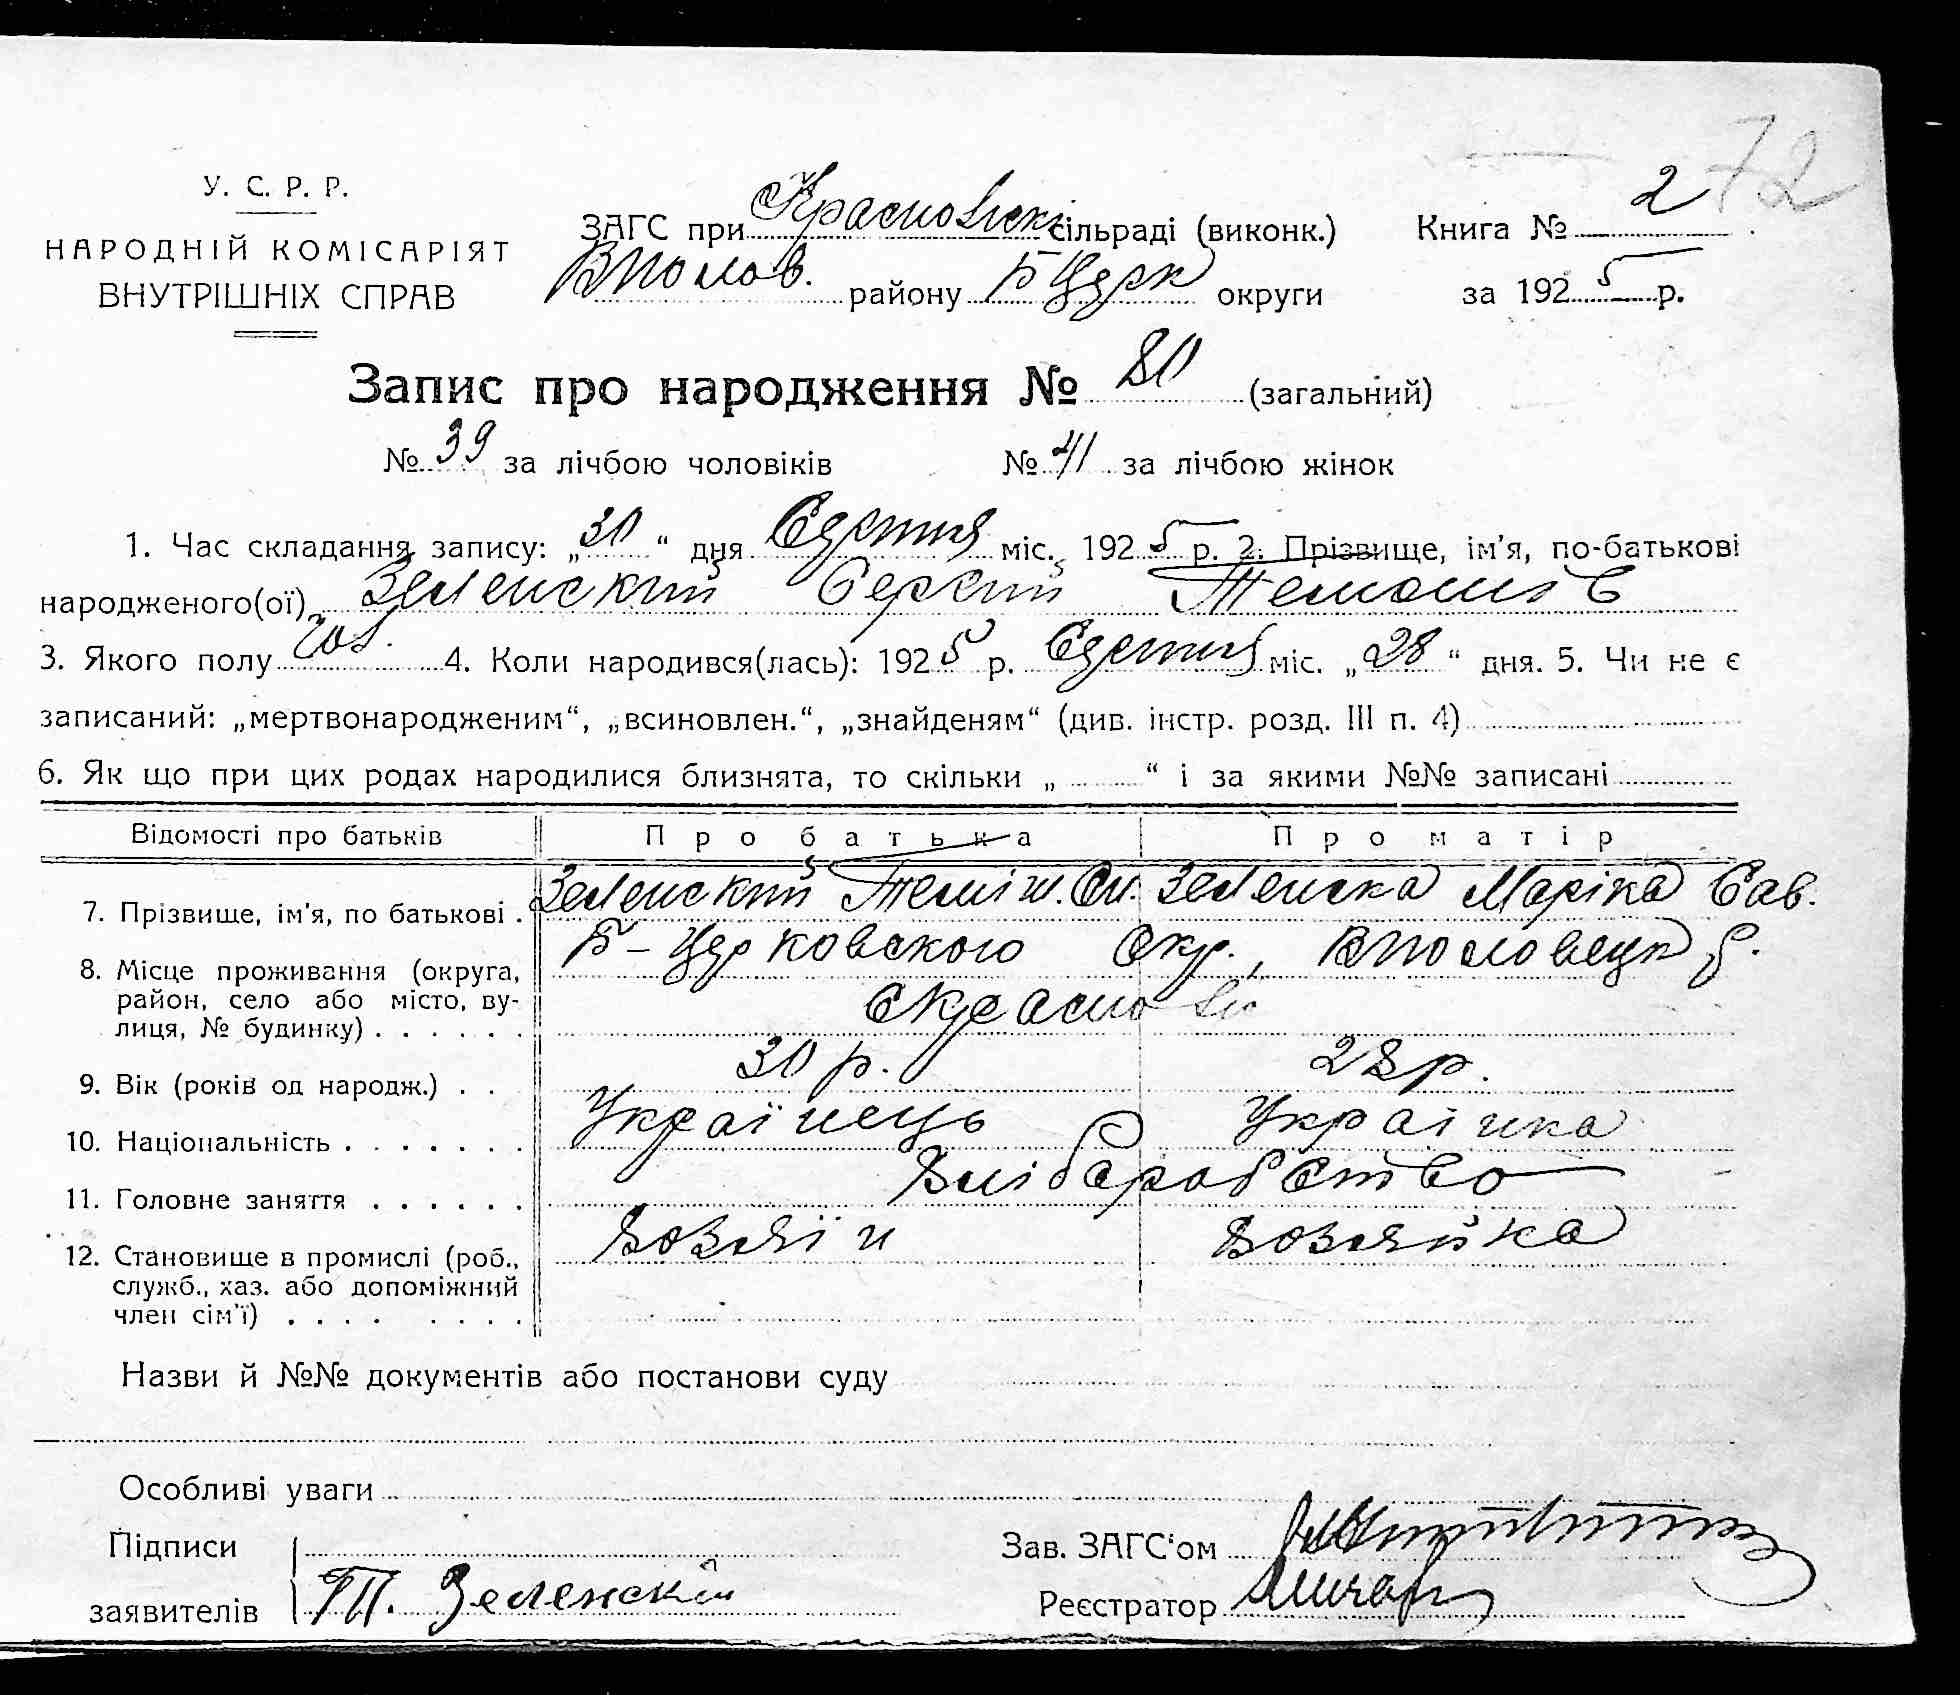 72
У. С. Р. Р.
НАРОДНІЙ КОМІСАРІЯТ
ВНУТРІШНІХ СПРАВ
ЗАГС при Краснівскі сільраді (виконк.) Книга № 2
Вполов. району Б Церк округи за 1925 р.
Запис про народження № 80 (загальний)
№ 39 за лічбою чоловіків № 41 за лічбою жінок
1. Час складання запису: „30“ дня Серпня міс. 1925 р. 2. Прізвище, ім'я, по-батькові
народженого(ої) Зеленский Сергий
3. Якого полу чол. 4. Коли народився(лась): 1925 р. Серпня міс. „28“ дня. 5. Чи не є
записаний: „мертвонародженим“, „всиновлен.“, „знайденям“ (див. інстр. розд. III п. 4)
6. Як що при цих родах народилися близнята, то скільки „ “ і за якими №№ записані
Відомості про батьків Про батька Про матір
7. Прізвище, ім'я, по батькові . Зеленский Зеленска Маріка Сав.
8. Місце проживання (округа, район, село або місто, вулиця, № будинку) . . . . . . Б-Церковского Окр., Вполовецк р.
9. Вік (років од народж.) . . 30 р. 28 р.
10. Національність . . . . . . . Українець Українка
11. Головне заняття . . . . . . Хліборобство
12. Становище в промислі (роб., служб., хаз. або допоміжний член сім'ї) . . . . . . . . Хозяїн Хозяйка
Назви й №№ документів або постанови суду
Особливі уваги
Підписи
заявителів Т. Зеленский
Зав. ЗАГС'ом
Реєстратор